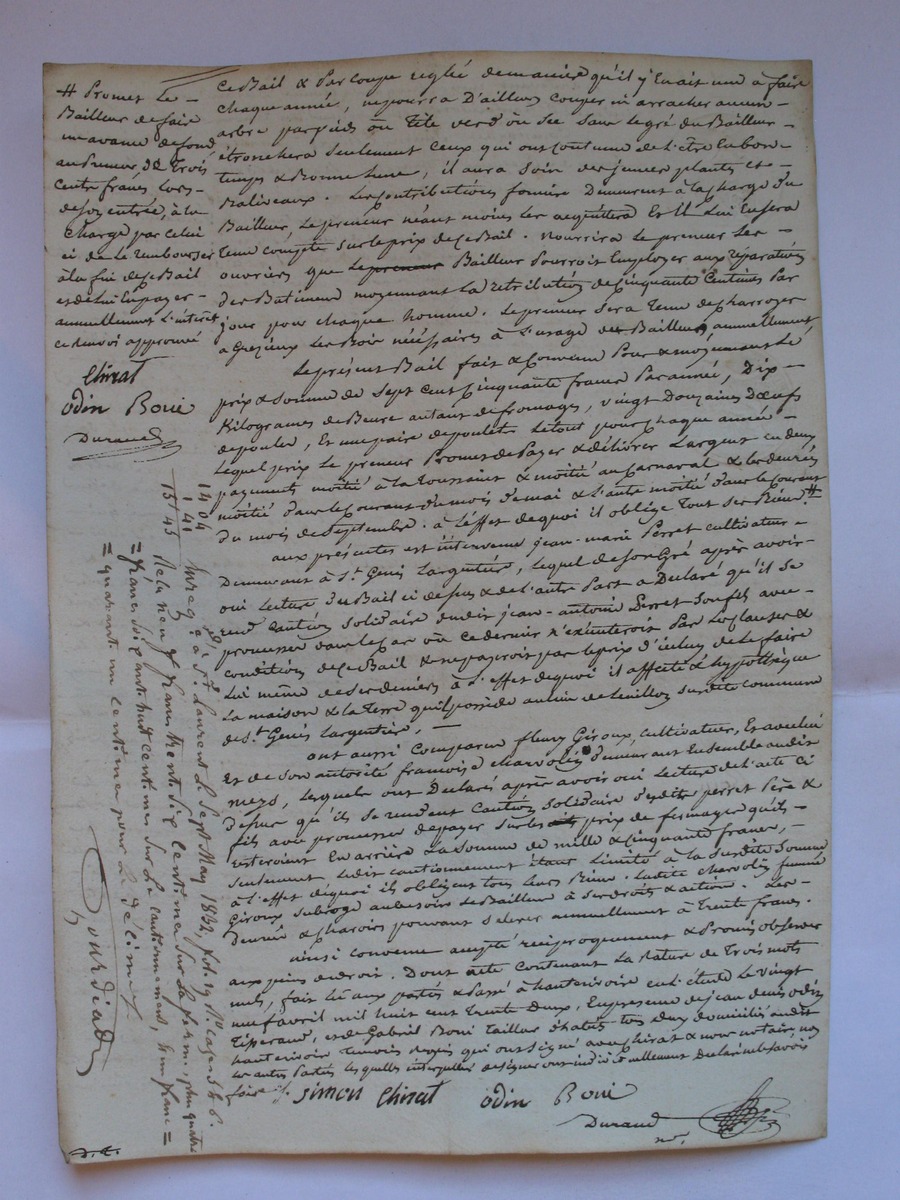 # Promet Le
Bailleur de faire
une avance de fond
au Preneur de Trois
Cents francs Lors
de son entrée, à la
Charge par Celui
ci de le rembourser
à la fin de ce Bail
et de lui En payer
annuellement L'interêt
ce renvoi approuvé
Chirat
odin Boui
Durand
ce Bail & Par Coupe reglée de maniere qu'il y En ait une a faire
chaque année, ne poura D'ailleurs couper ni arracher aucun
arbre par pieds ou Tête verd ou sec sans le gré du Bailleur
étronchera seulement Ceux qui ont Coutume de L'être En bon
temps & Bonne Lune, il aura soin des jeunes plantes et
Baliveaux. Les Contributions foncière Demeurent à la charge du
Bailleur, Le preneur néant moins les acquittera Et il Lui En sera
tenu compte sur le prix de Ce Bail. nourrira Le preneur Les
ouvriers que Le preneur Bailleur Pourroit Employer aux réparations
des Batiments moyennant La retribution de Cinquante Centimes Par
jour pour chaque homme. Le preneur sera Tenu de charroyer
a Grezieux Les Bois nécéssaires à L'usage du Bailleur, annuellement
Le présent Bail fait & Convenu Pour & moyennant Le
prix & somme de Sept Cent Cinquante francs Par année, Dix
Kilogrames de Beure autant de fromages, vingt Douzaines D'œufs
de poules, Et une paire de poulets Le tout pour chaque année
Lequel prix Le preneur Promet de Payer & délivrer L'argent en deux
payements moitié à la Toussaint & moitié au Carnaval & les denrées
moitié dans le Courant du mois de mai & L'autre moitié dans le Courant
du mois de Septembre. à L'éffet de quoi il oblige Tout ses Biens #
aux présentes est intervenu jean-marie Perret cultivateur
Demeurant à St. Genis Largentiere, Lequel de son Gré après avoir
oui Lecture du Bail ci dessus & de L'autre Part a Declaré qu'il se
rend Caution solidaire dudit jean-antoine Perret son fils avec
promesse dans le Cas où ce dernier n'exécuteroit Pas Les Clauses &
condition de Ce Bail & ne payeroit pas le prix d'icelui de Le faire
Lui même de ses deniers à L'effet de quoi il affecte & hypothèque
La maison & la terre qu'il possède au lieu de sur dite commune
de St. Genis Largentière,
ont aussi Comparu fleury Giroux, cultivateur, Et avec lui
Et de son autorité françoise charvolin demeurant Ensemble audit
meys, Lesquels ont Declarés après avoir oui Lecture de L'acte Ci
dessus qu'ils se rendent Caution Solidaire desdits perret Père &
fils avec promesse de payer sur les prix de fermages qu'ils
resteroient En arrière La Somme de mille & Cinquante francs,
seulement Ledit Cautionnement étant Limité à La susdite Somme
à L'effet de quoi ils obligent tous Leurs Biens. Ladite charvolin femme
Giroux subroge au besoin Le Bailleur à ses droits & action. Les
Denrées & Charois pouvant s'elever annuellement à Trente francs.
ainsi convenu accepté réciproquement & Promis observer
aux peines de droit. Dont acte contenant La rature de Trois mots
nuls, fait Lu aux partis & Passé à hauterivoire en L'étude Le vingt
neuf avril mil huit cent Trente Deux, En presence de jean denis odin
Tisserand, et de Gabriel Boui Tailleur d'habits tous Deux domiciliés audit
hauterivoire Temoins requis qui ont signé avec chirat & nous notaire, non
les autres Parties lesquelles interpellées de signer ont individuellement Declaré ne le savoir
faire ./. Simon Chirat odin Boui
Durand
nre.
14 04
1 41
15 45
Enregé à St. Laurent Le Sept May 1832, fol. 19 Ro. Case 5 & 6.
Reçu neuf francs trente six centimes sur La ferme, plus quatre
francs soixante huit centimes sur Le cautionnement, & un franc
quarante un centimes pour Le décime